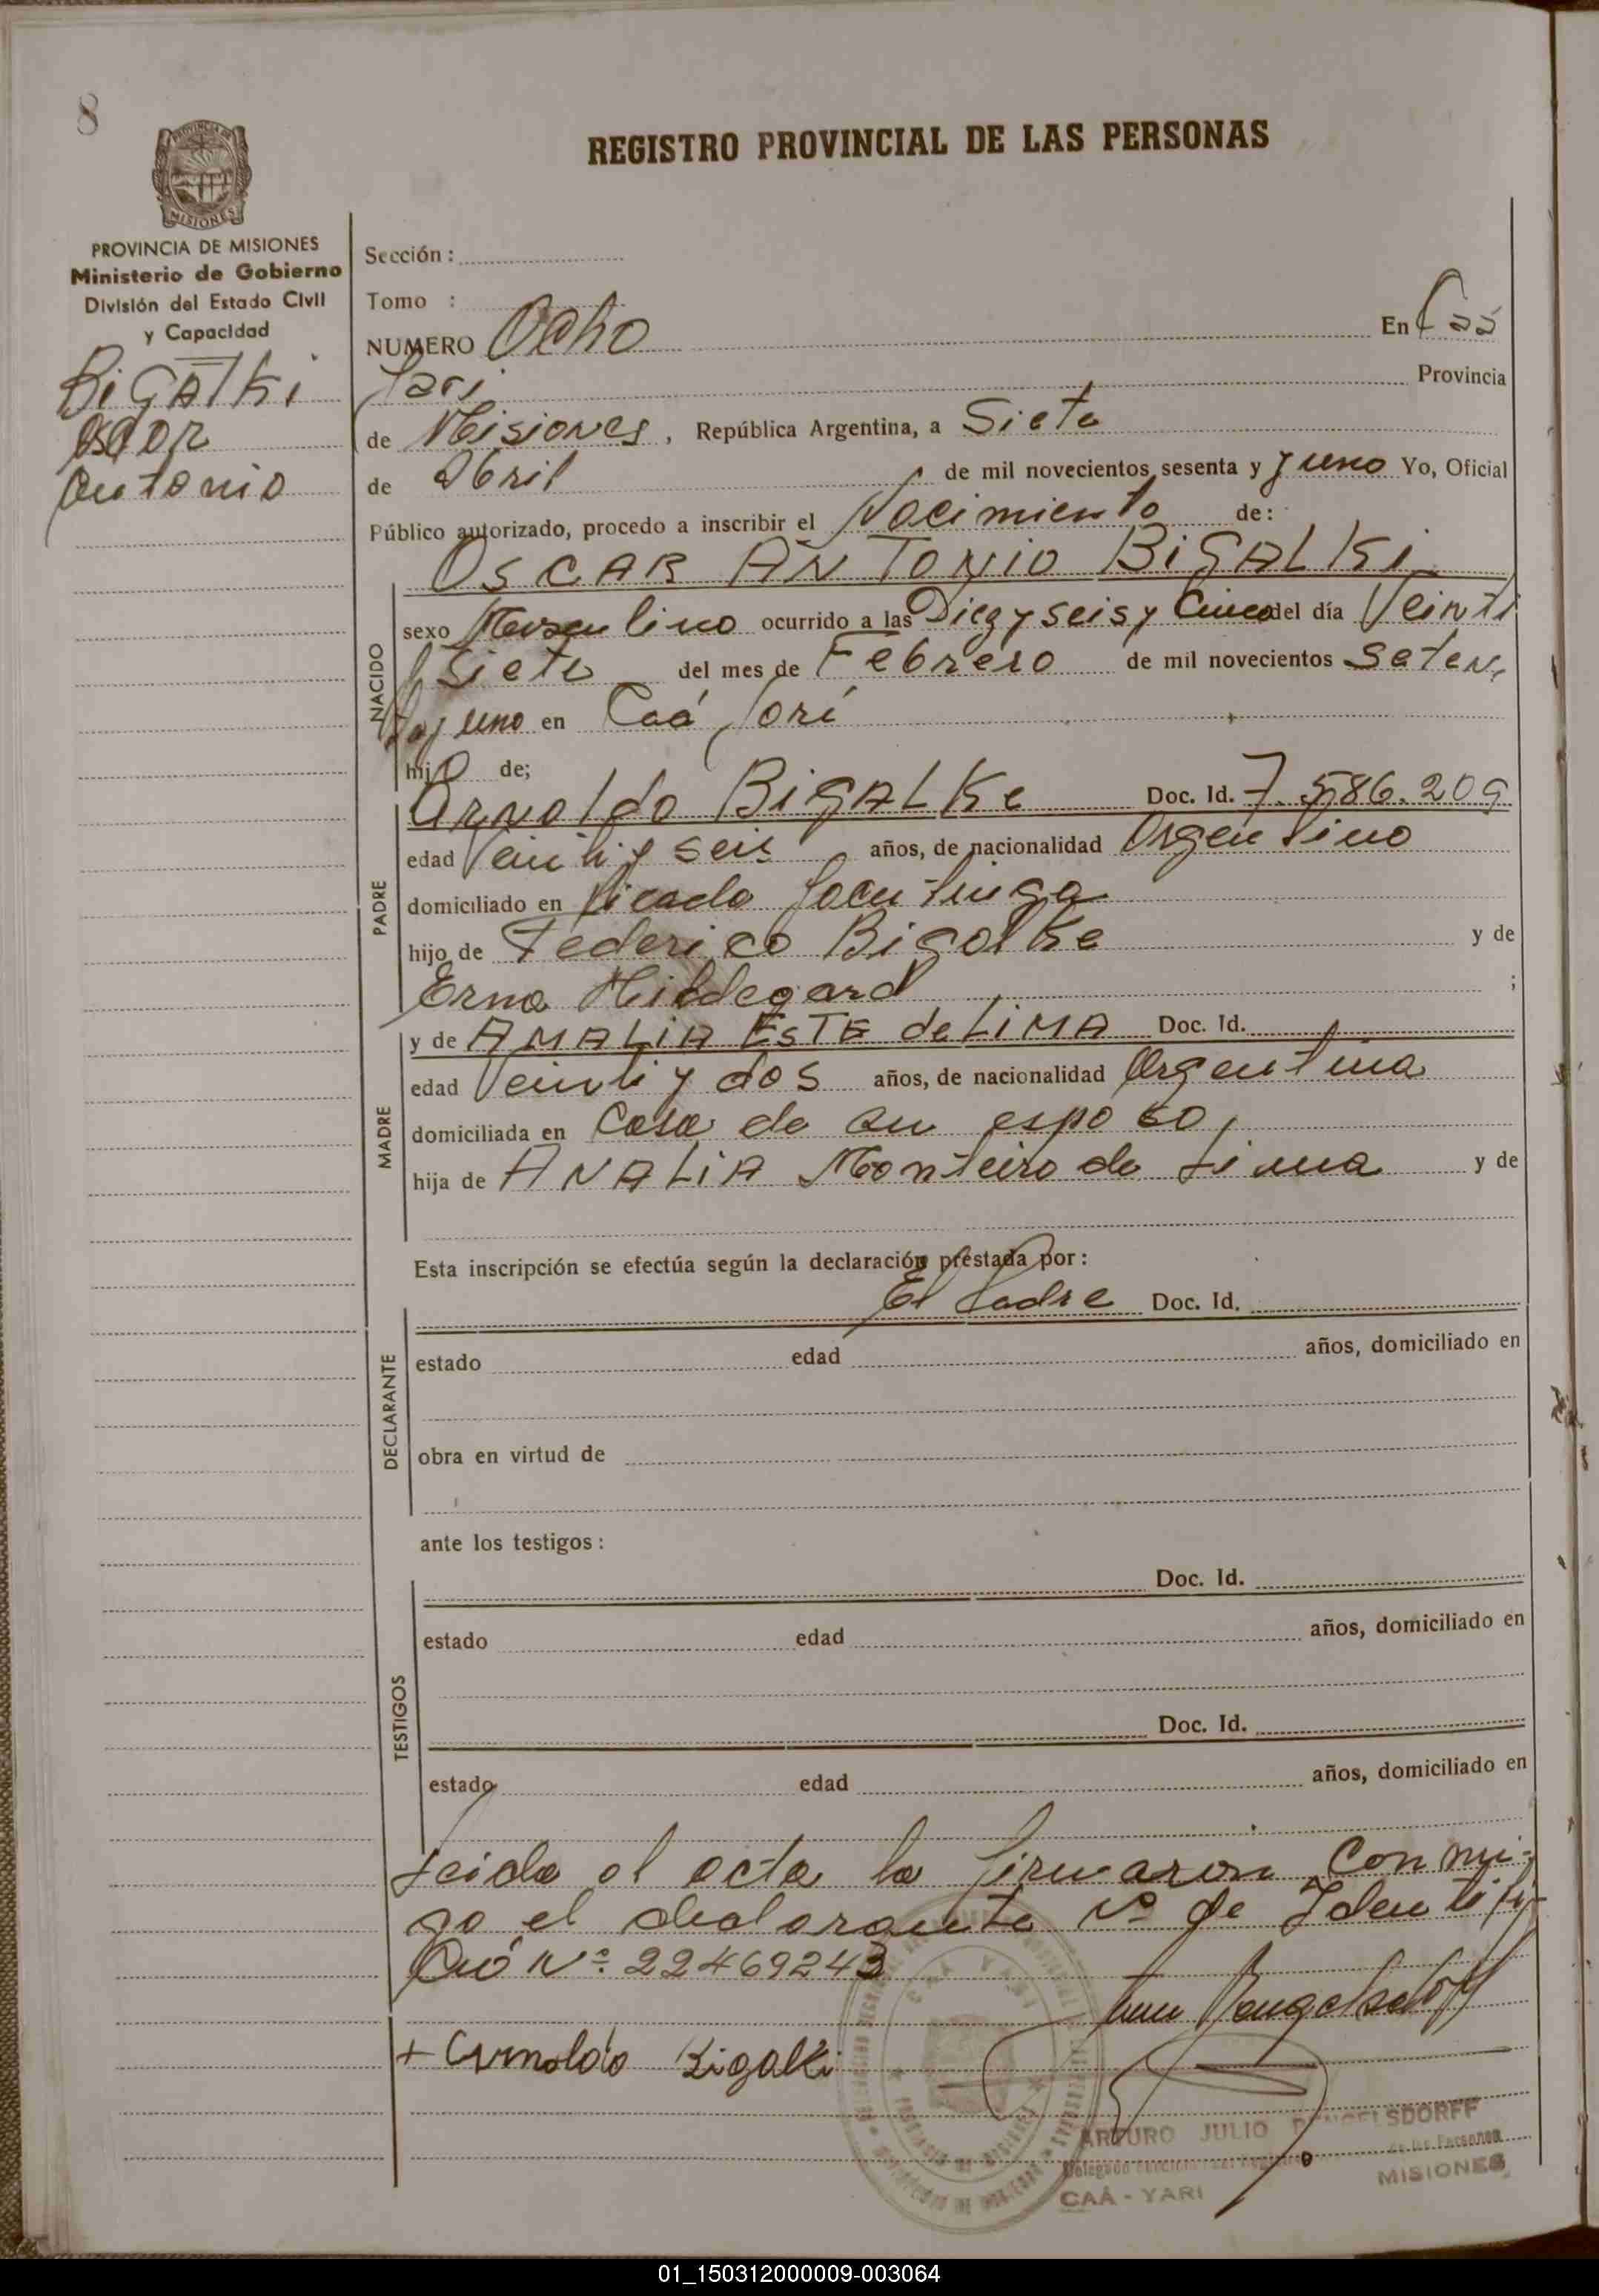 8
PROVINCIA DE MISIONES
REGISTRO PROVINCIAL DE LAS PERSONAS
PROVINCIA DE MISIONES
Ministerio de Gobierno
División del Estado Civil
y Capacidad
BigAlki
Oscar
Antonio
Sección :
Tomo :
NUMERO Ocho En Caá
Yari Provincia
de Misiones, República Argentina, a Siete
de Abril de mil novecientos sesenta y y uno Yo, Oficial
Público autorizado, procedo a inscribir el Nacimiento de:
OSCAR ANTONIO BiGALKi
NACIDO
sexo Masculino ocurrido a las Diez y seis y Cinco del día Veinti
Siete del mes de Febrero de mil novecientos Seten
ta y uno en Caá Yarí
hijo de;
PADRE
Arnoldo BiGALKe Doc. Id. 7.586.209
edad Veinti y seis años, de nacionalidad Argentino
domiciliado en Picada
hijo de Federico Bigalke y de
Erna Hildegard ;
MADRE
y de AMALiA ESTE de LiMA Doc. Id.
edad Veinti y dos años, de nacionalidad Argentina
domiciliada en Casa de su esposo,
hija de ANALiA Monteiro de Lima y de
Esta inscripción se efectúa según la declaración prestada por :
DECLARANTE
El Padre Doc. Id.
estado edad años, domiciliado en
obra en virtud de
ante los testigos :
TESTIGOS
Doc. Id.
estado edad años, domiciliado en
Doc. Id.
estado edad años, domiciliado en
Leida el acta la firmaron Conmi-
go el declarante Nº de Identifi-
Nº 22469243
+ Arnoldo Bigalki
ARTURO JULIO DENGELSDORFF
de las Personas
CAÁ - YARI MISIONES
01_150312000009-003064